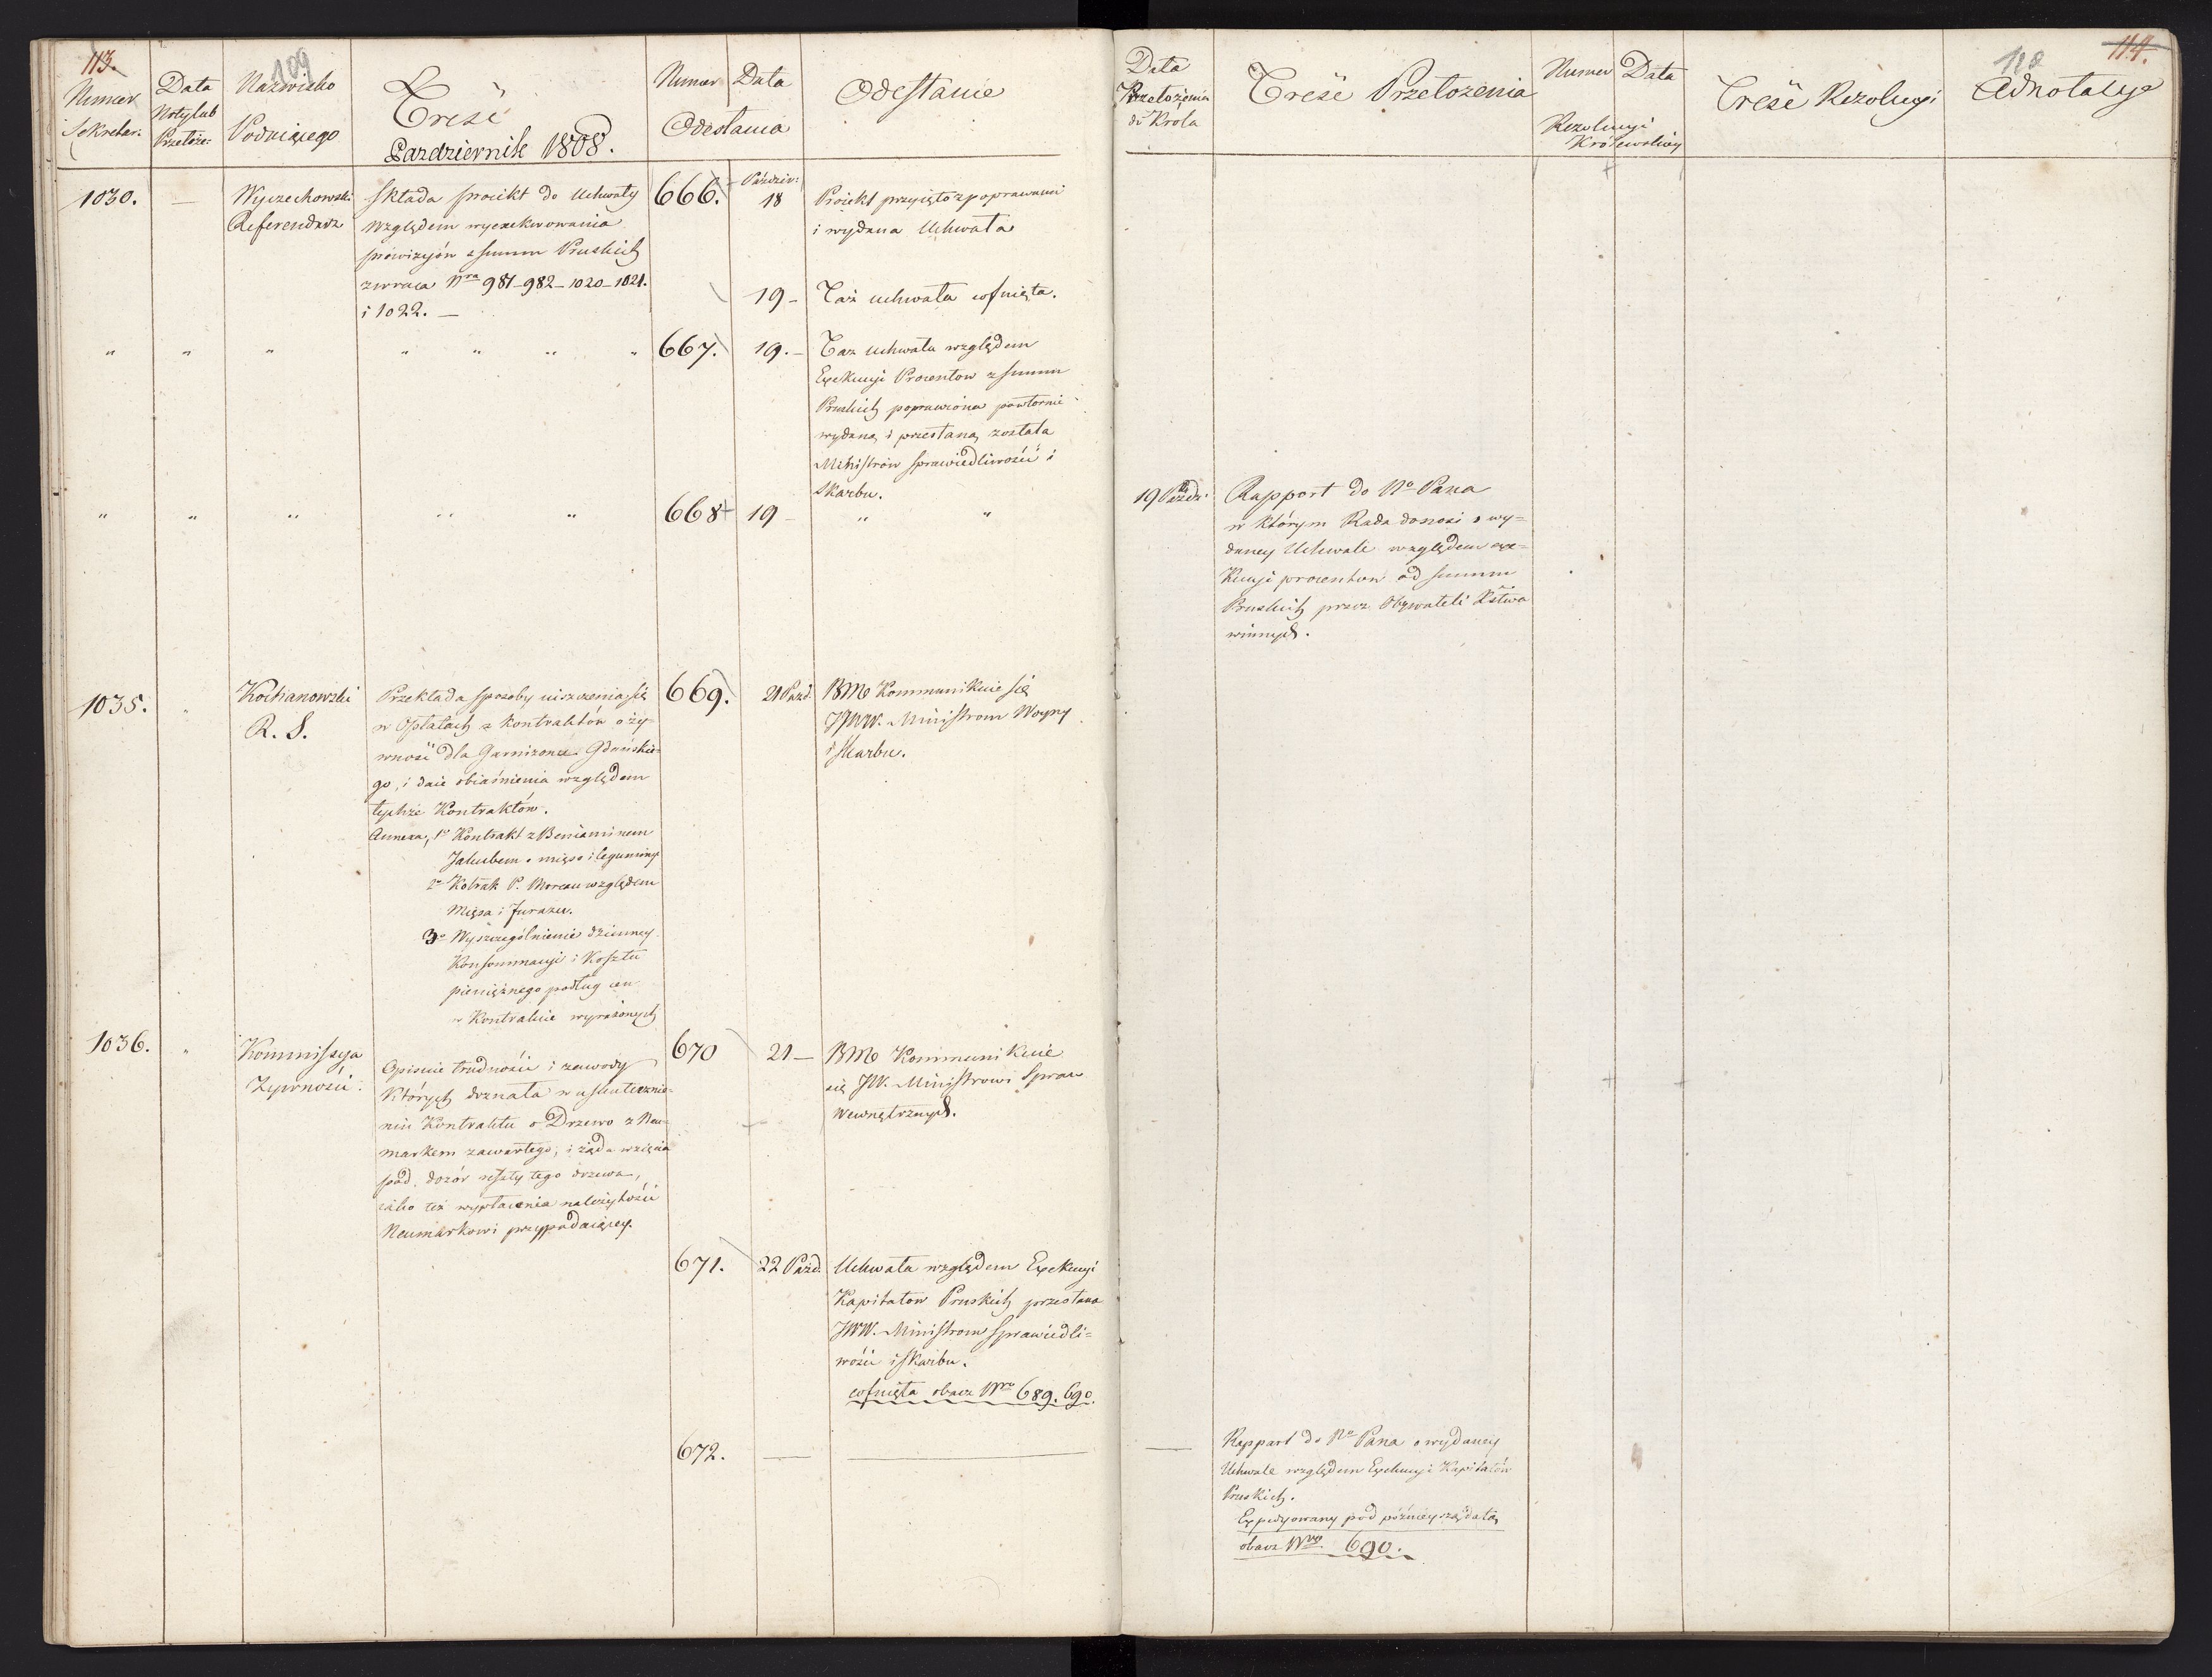 113.
109
Numer
Sekretar:
Data
Noty lub
Przełoże:
Nazwisko
Podaiącego
Treść
Pazdziernik 1808.
Numer
Data
Odesłania
Odesłanie
1030.
—
Wyczechowski
Referendarz
Składa proiekt do Uchwały
względem wyexekwowania
prowizyów z summ Pruskich
zwraca Nra 981–982–1020–1021.
i 1022. —
666.
Paździer:
18
Proiekt przyięto z poprawami
i wydana Uchwała
19 –
Taż uchwała cofnięta.
" " " " " " "
667.
19. –
Taz uchwała względem
Exekucyi Procentow z summ
Pruskich poprawiona powtornie
wydaną i przesłaną została
Ministrów Sprawiedliwości i
Skarbu.
" " " " "
668
19 –
" "
1035.
"
Kochanowski
R. S.
Przekłada sposoby uiszczenia się
w Opłatach z kontraktów o ży-
wność dla Garnizonu Gdańskie-
go, i daie obiaśnienia względem
tychże Kontraktów.
Annexa, 1o Kontrakt z Beniaminem
Jakubem o mięso i leguminy
2o Kotrak P. Moreau względem
Mięsa i Furażu.
3o Wyszczególnienie dzienney
Konsummacyi i Kosztu
pieniężnego podług cen
w Kontrakcie wyrażonych
669.
21 Pazd.
BMo Kommunikuie się
JWW. Ministrom Woyny
i Skarbu.
1036.
"
Kommissya
Żywności.
Opisuie trudności i zawody
których doznała w uskutecznie-
niu Kontraktu o Drzewo z Neu-
markem zawartego; i żąda wzięcia
pod dozór reszty tego drzewa,
iako też wypłacenia należytości
Neumarkowi przypadaiącey.
670
21 —
BMo Kommunikuie
się JW. Ministrowi Spraw
Wewnętrznych.
671.
22 Pazd.
Uchwała względem Exekucyi
Kapitałow Pruskich przesłana
JWW. Ministrom Sprawiedli-
wości i Skarbu.
cofnięta obacz Nro 689. 690.
672.
—
—
110
114.
Data
Przełożenia
do Krola
Treść Przełozenia
Numer
Data
Rezolucyi
Królewskiey
Treść Rezolucyi
Adnotacye
19 Paźdz:
Rapport do No Pana
w którym Rada donosi o wy-
daney Uchwale względem exe-
Kucyi procentow od summ
Pruskich przez Obywateli Xstwa
winnych.
—
Rapport do No Pana o wydaney
Uchwale względem Exekucyi Kapitałów
Pruskich.
Expedyowany pod późnieyszą datą
obacz Nro 690.